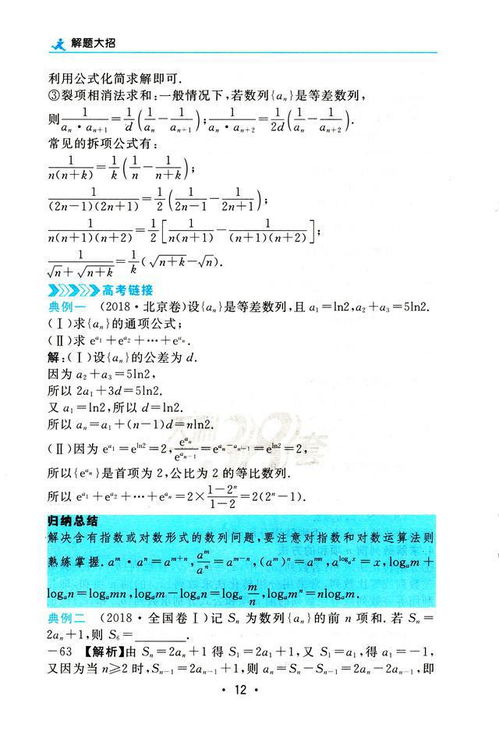 解题大招
利用公式化简求解即可.
③裂项相消法求和:一般情况下,若数列{aₙ}是等差数列,
则1/(aₙ·aₙ₊₁)=1/d(1/aₙ-1/aₙ₊₁);1/(aₙ·aₙ₊₂)=1/2d(1/aₙ-1/aₙ₊₂).
常见的拆项公式有:
1/n(n+k)=1/k(1/n-1/(n+k));
1/(2n-1)(2n+1)=1/2(1/(2n-1)-1/(2n+1));
1/n(n+1)(n+2)=1/2[1/n(n+1)-1/(n+1)(n+2)];
1/(√n+√(n+k))=1/k(√(n+k)-√n).
高考链接
典例一 (2018·北京卷)设{aₙ}是等差数列,且a₁=ln2,a₂+a₃=5ln2.
(Ⅰ)求{aₙ}的通项公式;
(Ⅱ)求e^a₁+e^a₂+⋯+e^aₙ.
解:(Ⅰ)设{aₙ}的公差为d.
因为a₂+a₃=5ln2,
所以2a₁+3d=5ln2.
又a₁=ln2,所以d=ln2.
所以aₙ=a₁+(n-1)d=nln2.
(Ⅱ)因为e^a₁=e^ln2=2,e^aₙ/e^aₙ₋₁=e^(aₙ-aₙ₋₁)=e^ln2=2,
所以{e^aₙ}是首项为2,公比为2的等比数列.
所以e^a₁+e^a₂+⋯+e^aₙ=2×(1-2ⁿ)/(1-2)=2(2ⁿ-1).
归纳总结
解决含有指数或对数形式的数列问题,要注意对指数和对数运算法则
熟练掌握.aᵐ·aⁿ=aᵐ⁺ⁿ,aᵐ/aⁿ=aᵐ⁻ⁿ,(aᵐ)ⁿ=aᵐⁿ,a^(logₐx)=x,logₐm+
logₐn=logₐmn,logₐm-logₐn=logₐ m/n,logₐmⁿ=nlogₐm.
典例二 (2018·全国卷Ⅰ)记Sₙ为数列{aₙ}的前n项和.若Sₙ=
2aₙ+1,则S₆=________.
-63 【解析】由Sₙ=2aₙ+1得S₁=2a₁+1,又S₁=a₁,得a₁=-1,
又因为当n≥2时,Sₙ₋₁=2aₙ₋₁+1,则aₙ=Sₙ-Sₙ₋₁=2aₙ-2aₙ₋₁,即
·12·